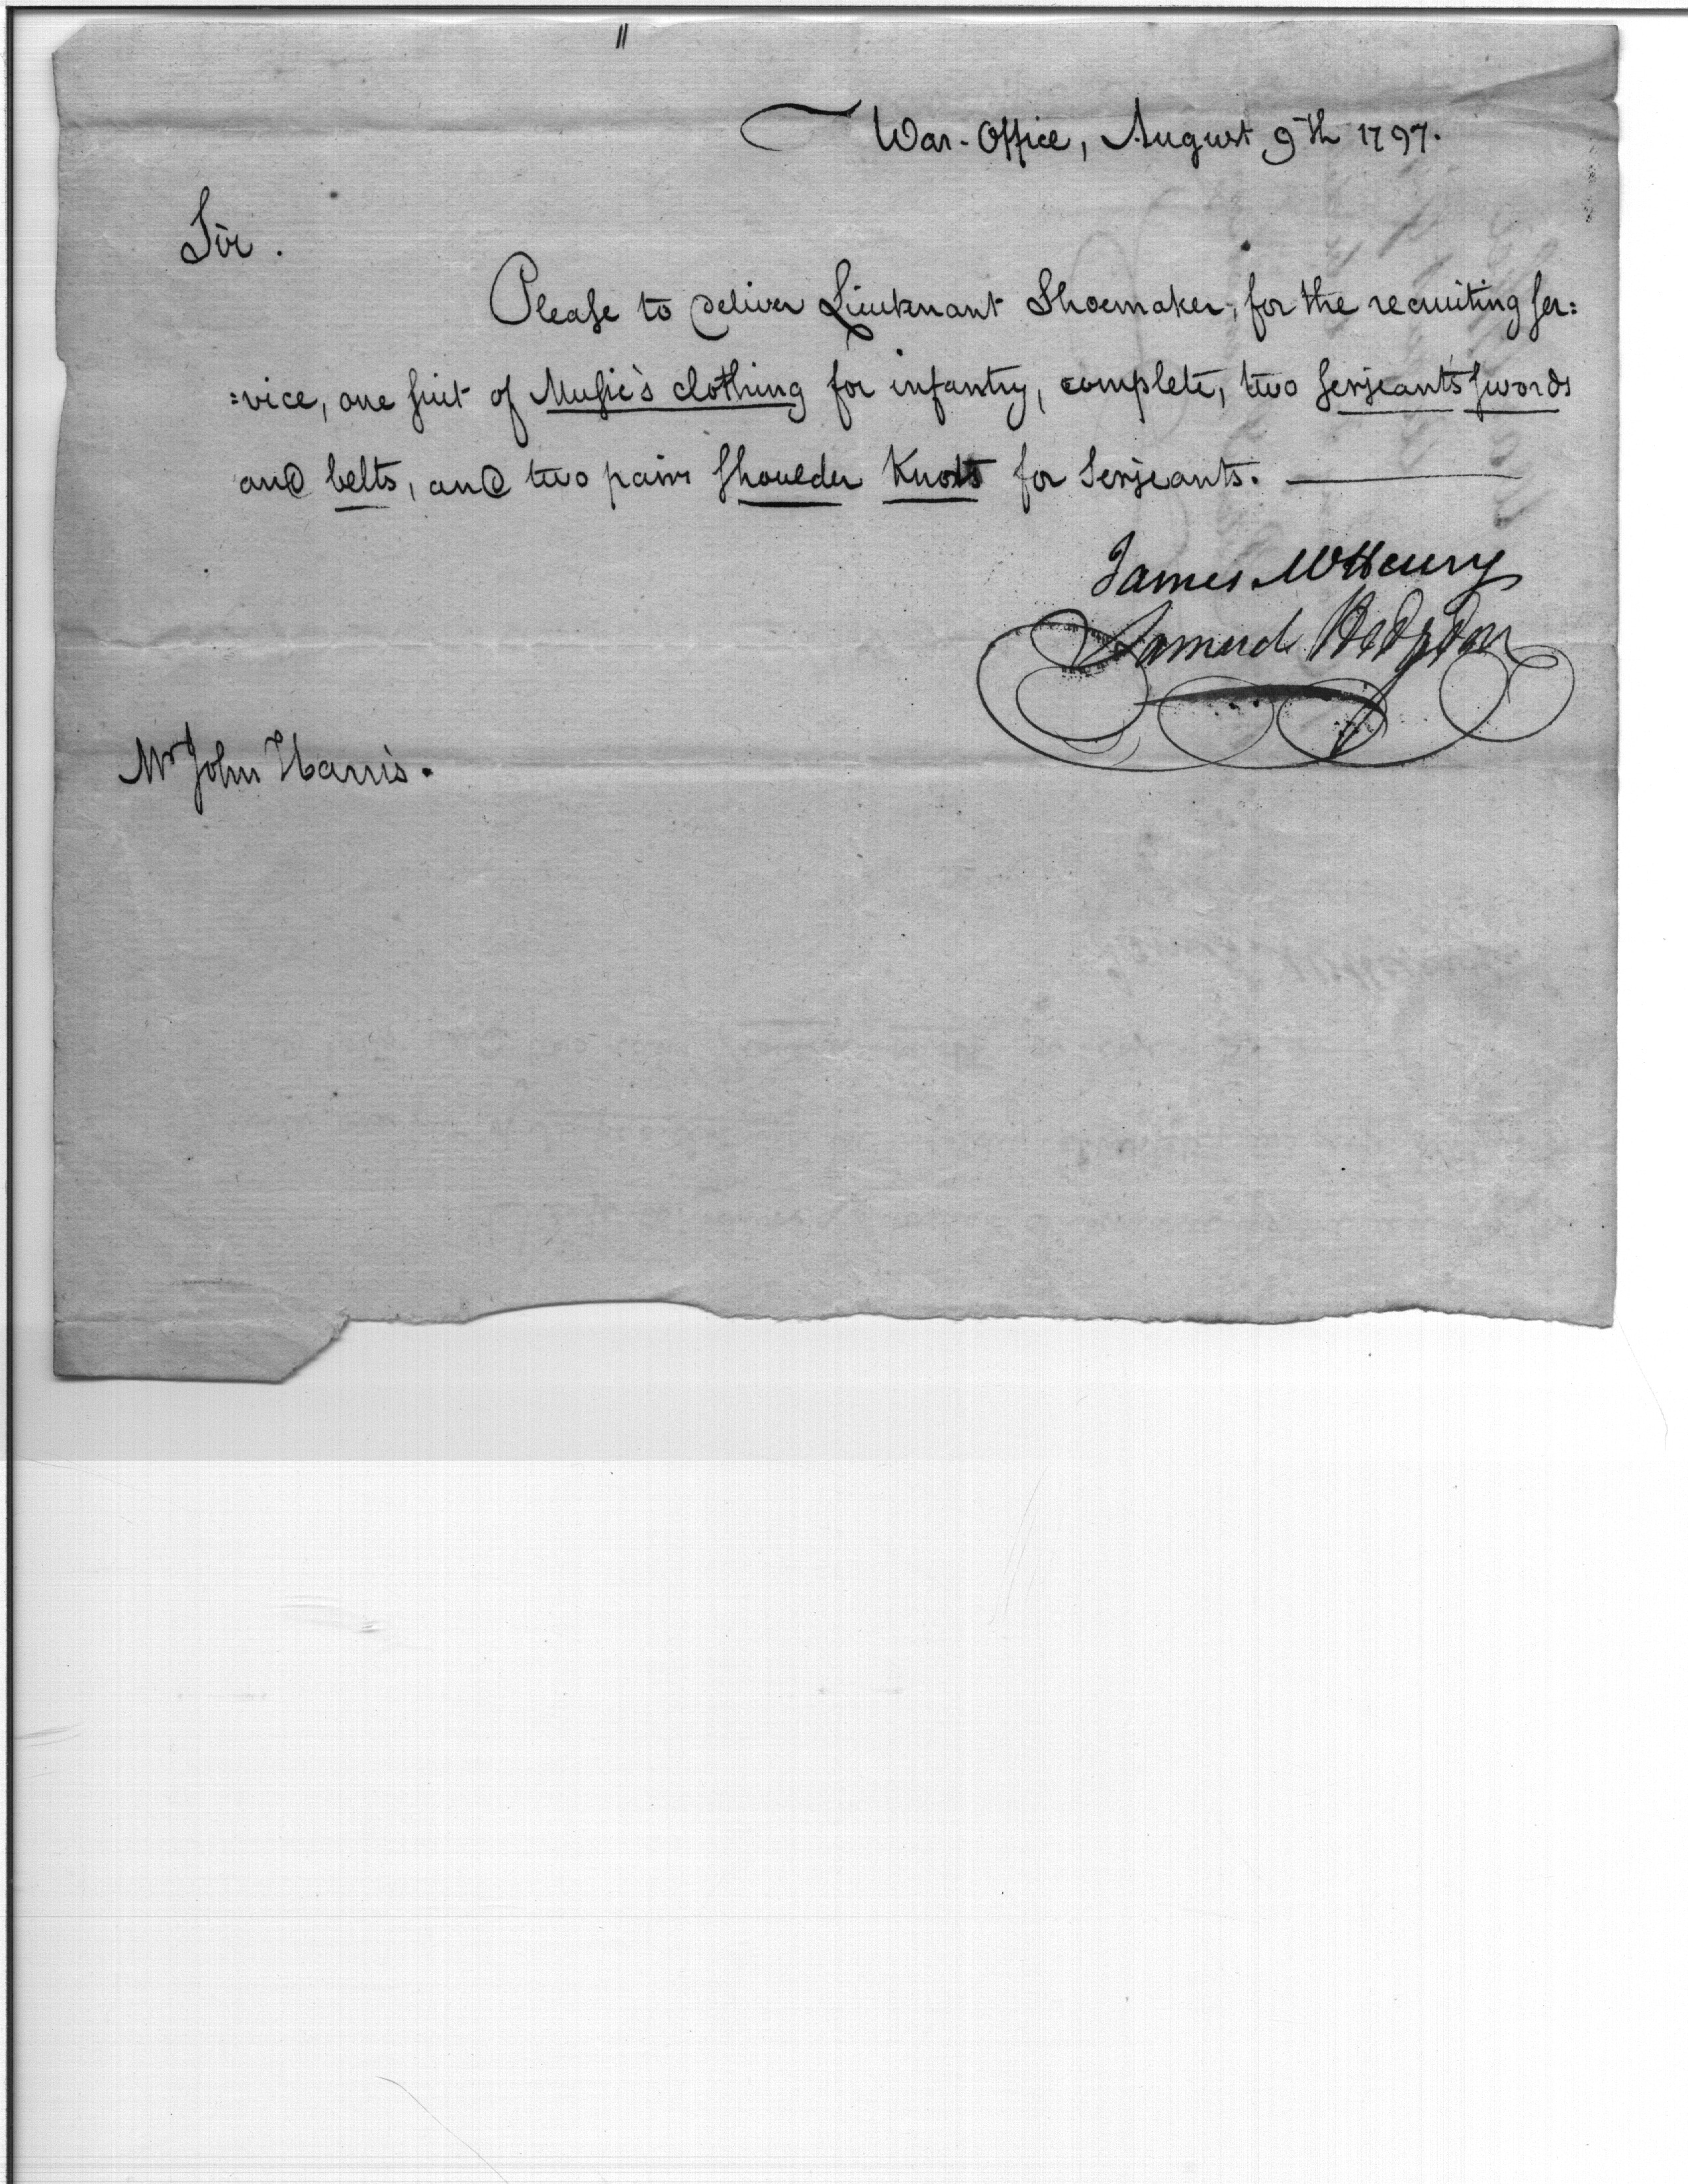 War-Office, August 9th 1797.
Sir.
Please to deliver Lieutenant Shoemaker, for the recruiting ser:
:vice, one suit of Music's clothing for infantry, complete, two serjeants swords
and belts, and two pair shoulder Knots for Serjeants.
James McHenry
Samuel Hodgdon
Mr John Harris.